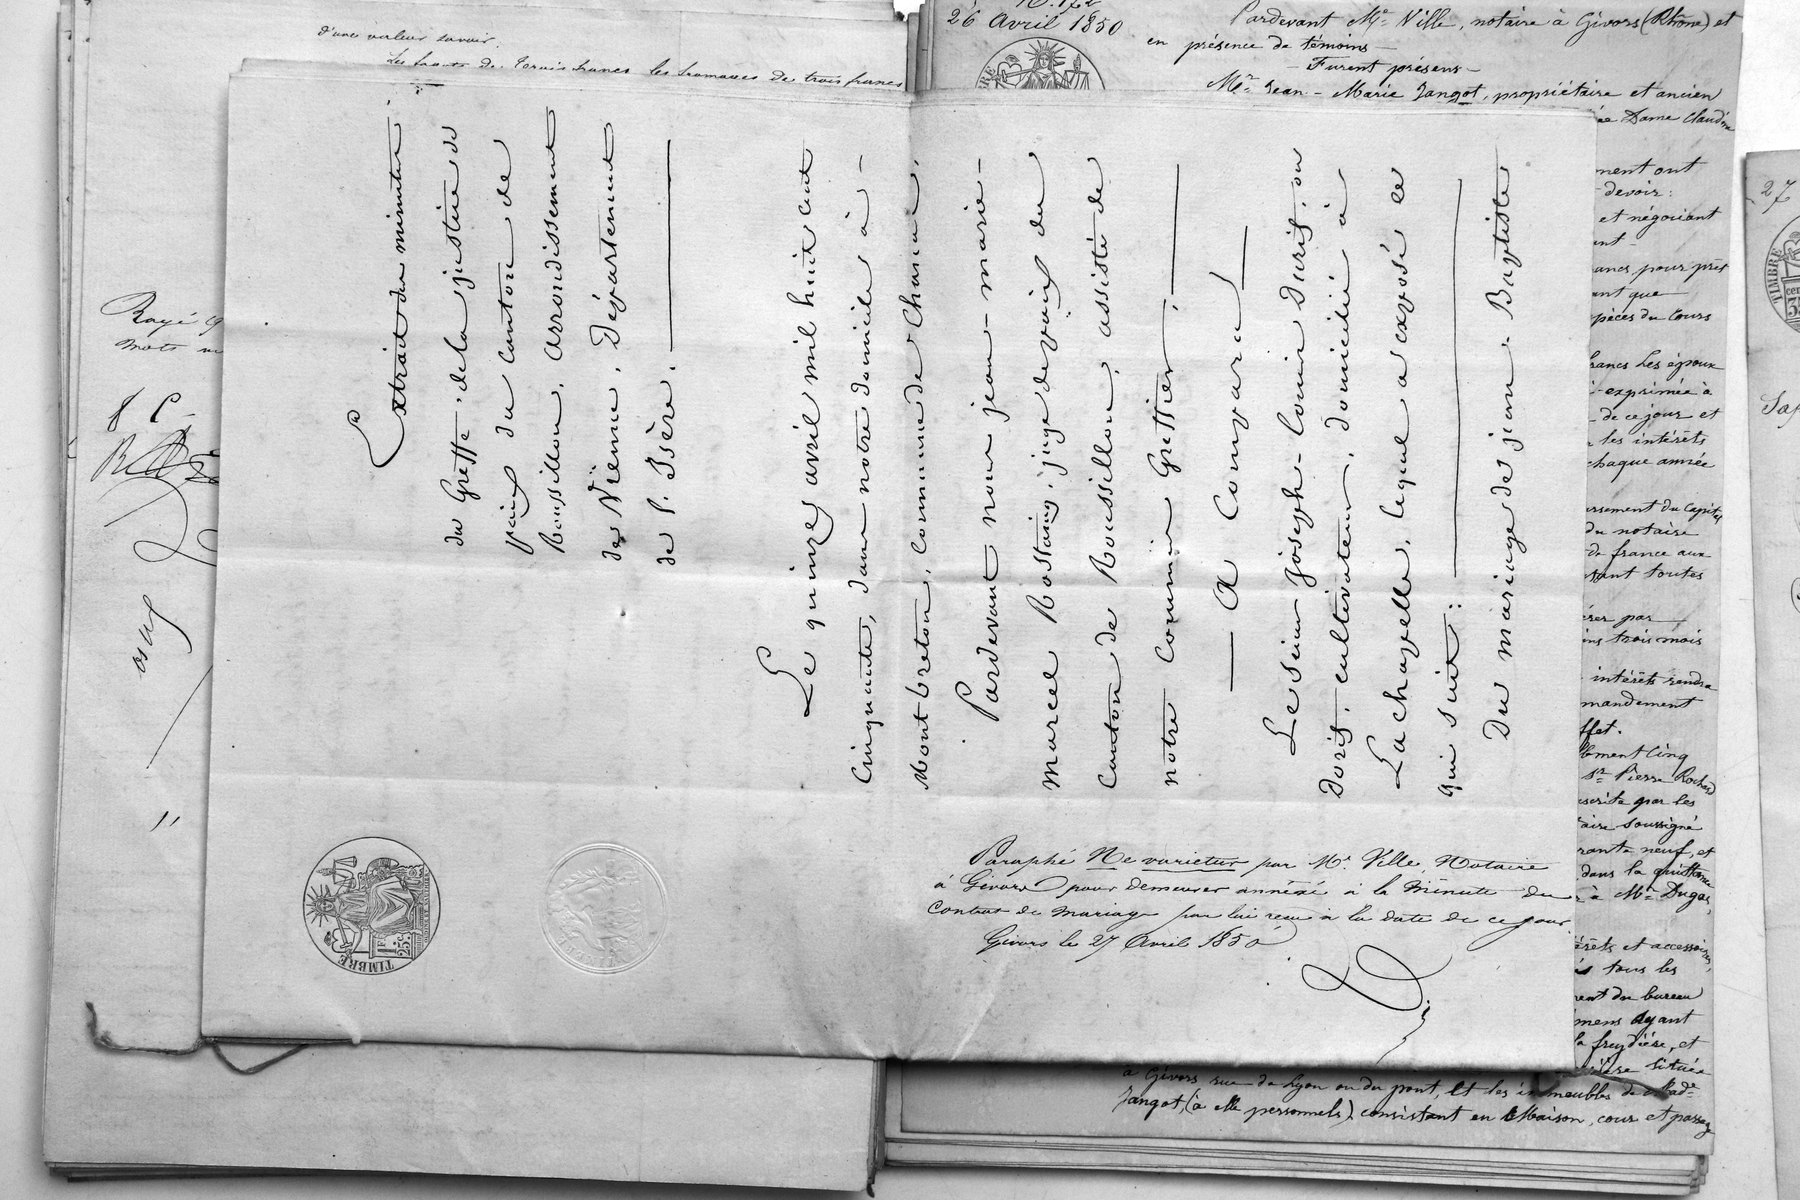 d'une valeur savoir:
Rayé
mots
26 Avril 1850
Pardevant Me Ville, notaire à Givors (Rhône) et
en présence de témoins
Furent présens
Mr Jean-Marie Jangot, propriétaire et ancien
Dame Claudine
Extrait des minutes
du Greffe, de la justice de
paix du canton de
Roussillon, arrondissement
de Vienne, Département
de l'Isère.
Le quinze avril mil huit cent
cinquante, dans notre domicile à
Montbreton, commune de Chanas,
Pardevant nous jean-marie-
Marcel Rostaing, juge de paix du
Canton de Roussillon, assisté de
notre commis Greffier,
A Comparu
Le sieur joseph-Louis Duris, ou
Doris, cultivateur, domicilié à
Lachapelle, lequel a exposé ce
qui suit:
Du mariage de jean-Baptiste
Paraphé Ne varietur par Me Ville, Notaire
à Givors pour demeurer annéxé à la Minute du
contrat de mariage par lui reçu à la date de ce jour.
Givors le 27 Avril 1850
TIMBRE
1 F.
25 c.
ment ont
devoir:
et négociant
ancs pour prêt
ant que
pèces du cours
francs les époux
exprimée à
de ce jour et
les intérêts
chaque année
ursement du capital
du notaire
de france aux
tant toutes
érer par
ins trois mois
intérêts rendra
mandement
ffet.
lement cinq
Sr Pierre Rochard
scrite par les
aire soussigné
rante neuf, et
dans la quittance
à Mr Dugas,
érêts et accessoires,
tous les
ment du bureau
mens ayant
la freydière, et
située
à Givors rue de Lyon ou du pont, et les immeubles de Made
Jangot, (à elle personnels) consistant en Maison, cour et passage
27
TIMBRE